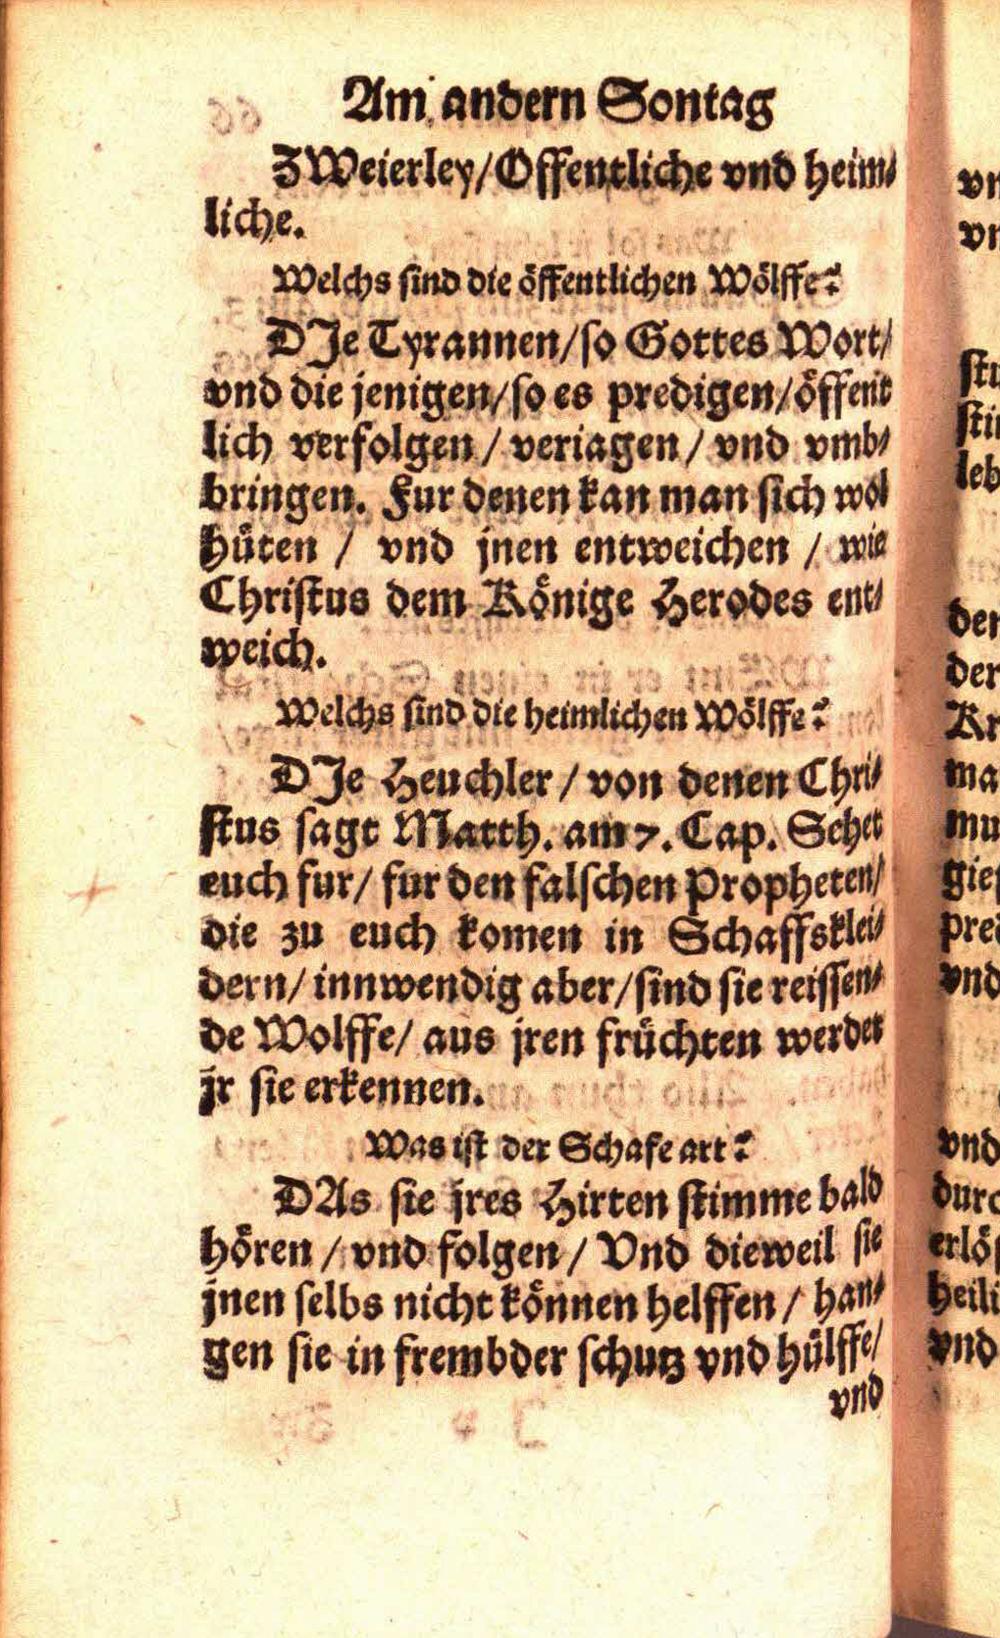 Am andern Sontag
ZWeierley/Offentliche vnd heim⸗
liche.
Welchs sind die öffentlichen Wölffe?
DJe Tyrannen/so Gottes Wort/
vnd die jenigen/so es predigen/öffent
lich verfolgen / veriagen / vnd vmb⸗
bringen. Fur denen kan man sich wol
hüten / vnd jnen entweichen / wie
Christus dem Könige Herodes ent⸗
weich.
Welchs sind die heimlichen Wölffe?
DJe Heuchler / von denen Chri⸗
stus sagt Matth. am 7. Cap. Sehet
euch fur/ fur den falschen Propheten/
die zu euch komen in Schaffsklei⸗
dern/ innwendig aber/sind sie reissen⸗
de Wolffe/ aus jren früchten werdet
jr sie erkennen.
Was ist der Schafe art?
DAs sie jres Hirten stimme bald
hören / vnd folgen / Vnd dieweil sie
jnen selbs nicht können helffen / han⸗
gen sie in frembder schutz vnd hülffe/
vnd
vn
vn
stu
stim
leb
der
der
Kr
ma
mu
gies
pred
vnd
vnd
durc
erlös
heili
vnd